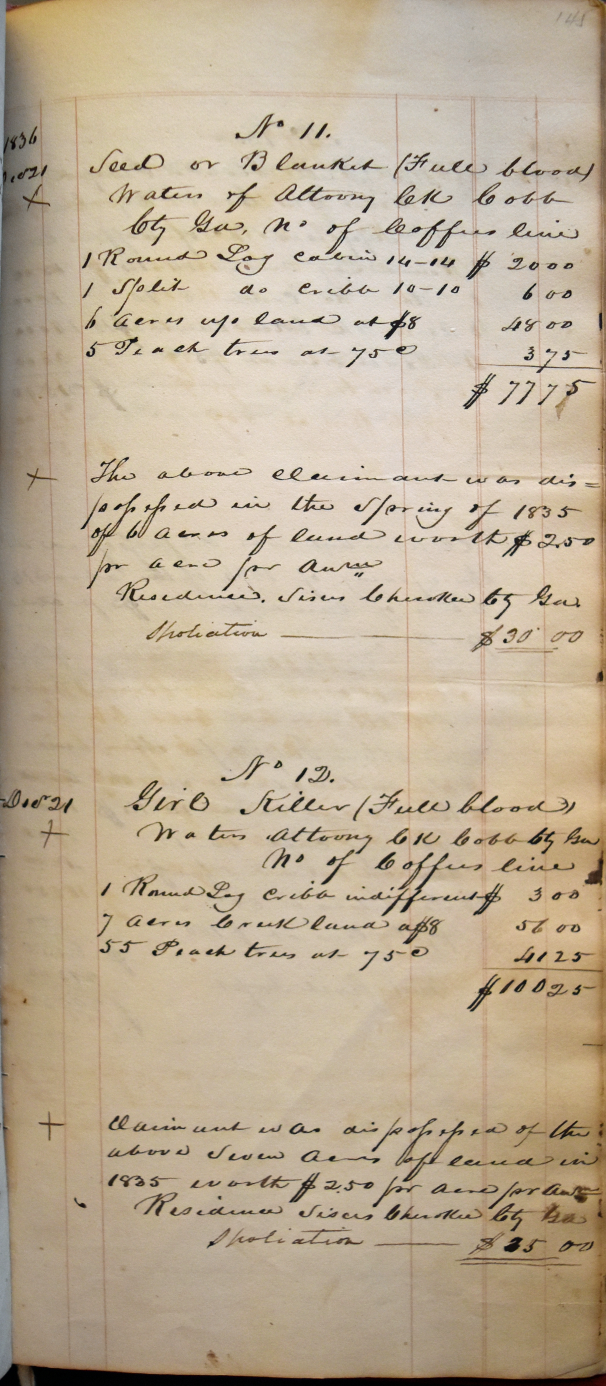 141
1836
Dec 21
No 11.
Seed or Blanket (Full blood)
Waters of Attoony CK Cobb
Cty Ga, No of Coffees line
1 Round Log cabin 14-14 $ 20 00
1 Split do cribb 10-10 6 00
6 Acres up land at $8 48 00
5 Peach trees at 75c 3 75
$ 77 75
The above Claimant was dis=
possessed in the Spring of 1835
of 6 Acres of land worth $2.50
pr acre pr Anm
Residence. Sixes Cherokee Cty Ga.
Spoliation $30 00
No 12.
Dec 21
Girl Killer (Full blood)
Waters Attoony CK Cobb Cty Ga
No of Coffees line
1 Round Log cribb indifferent $ 3 00
7 Acres Creek land a $8 56 00
55 Peach trees at 75c 41 25
$100 25
Claimant was dispossessed of the
above Seven Acres of land in
1835 worth $2.50 pr acre pr Anm
Residence Sixes Cherokee Cty Ga
Spoliation $35 00